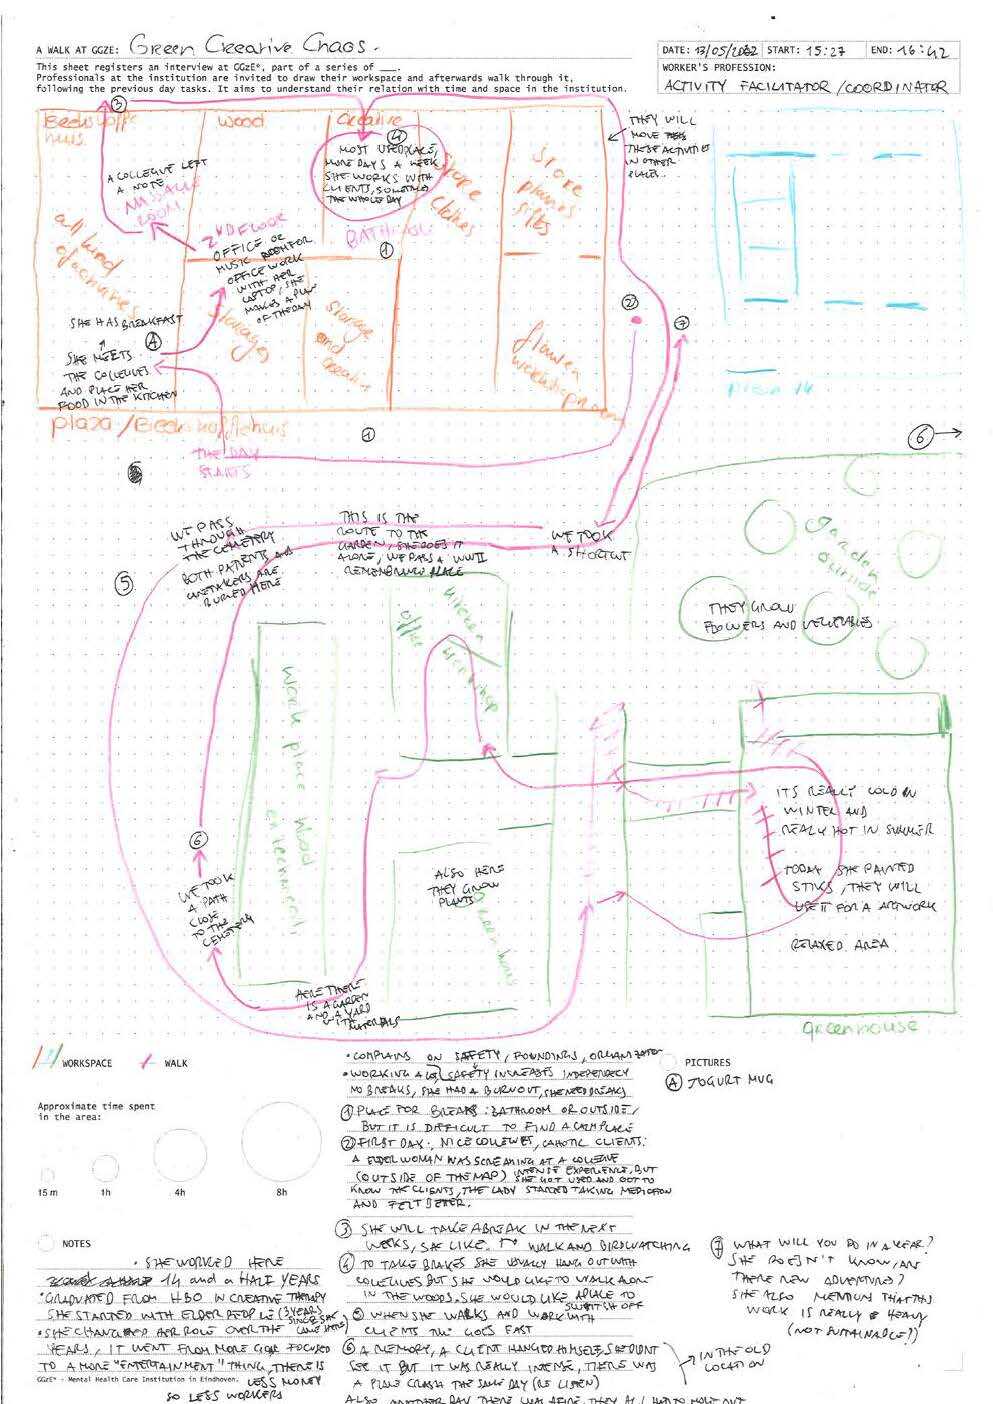 A WALK AT GGZE: Green Creative Chaos.
This sheet registers an interview at GGzE*, part of a series of ___.
Professionals at the institution are invited to draw their workspace and afterwards walk through it,
following the previous day tasks. It aims to understand their relation with time and space in the institution.
DATE: 13/05/2022 START: 15:27 END: 16:42
WORKER'S PROFESSION:
ACTIVITY FACILITATOR/COORDINATOR
3
huis
wood
Creative
4
MOST USED PLACE,
MORE DAYS A WEEK
SHE WORKS WITH
CLIENTS, SOMETIMES
THE WHOLE DAY
Store
clothes
Store
planes
gifts
THEY WILL
MOVE
THESE ACTIVITIES
IN OTHER
PLACES..
A COLLEGUE LEFT
A NOTE
MASSAGE
ROOM
2ND FLOOR
OFFICE OR
MUSIC ROOM FOR
OFFICE WORK
WITH HER
LAPTOP, SHE
MAKES A PLAN
OF THE DAY
BATHROOM
1
all kind
of activities
SHE HAS BREAKFAST
A
SHE MEETS
THE COLLEUES
AND PLACE HER
FOOD IN THE KITCHEN
Storages
Storage
and
creative
flower
workshoproom
2
7
plaza
THE DAY
STARTS
1
6
5
WE PASS
THROUGH
THE CEMETERY
BOTH PATIENTS
CARETAKERS ARE
BURIED HERE
THIS IS THE
ROUTE TO THE
GARDEN, SHE DOES IT
ALONE, WE PASS A WWII
REMEMBRANCE PLACE
WE TOOK
A SHORTCUT
Garden
outside
THEY GROW
FLOWERS AND VEGETABLES
office
workshop
work place wood
6
WE TOOK
A PATH
CLOSE
TO THE
CEMETERY
ALSO HERE
THEY GROW
PLANTS
HERE THERE
IS A GARDEN
AND A YARD
WITH MATERIALS
ITS REALLY COLD IN
WINTER AND
REALLY HOT IN SUMMER
TODAY SHE PAINTED
STIKS, THEY WILL
USE IT FOR A ARTWORK
RELAXED AREA
greenhouse
WORKSPACE WALK
PICTURES
A JOGURT MUG
Approximate time spent
in the area:
15 m 1h 4h 8h
• COMPLAINS ON SAFETY, FOUNDINGS,
• WORKING SAFETY INCREASES
NO BREAKS, SHE HAD A BURNOUT, SHE NEED BREAKS
1 PLACE FOR BREAKS: BATHROOM OR OUTSIDE,
BUT IT IS DIFFICULT TO FIND A CALM PLACE
2 FIRST DAY: NICE COLLEUES, CAHOTIC CLIENTS:
A ELDER WOMAN WAS SCREAMING AT A COLLEUE
(OUTSIDE OF THE MAP) INTENSE EXPERIENCE, BUT
SHE GOT USED AND GOT TO
KNOW THE CLIENTS, THE LADY STARTED TAKING MEDICATION
AND FELT BETTER.
3 SHE WILL TAKE A BREAK IN THE NEXT
WEEKS, SHE LIKE. TO WALK AND BIRDWATCHING
4 TO TAKE BRAKES SHE USUALLY HANG OUT WITH
COLLEUES BUT SHE WOULD LIKE TO WALK ALONE
IN THE WOODS. SHE WOULD LIKE A PLACE TO
SWITSH OFF
5 WHEN SHE WALKS AND WORK WITH
CLIENTS TIME GOES FAST
6 A MEMORY, A CLIENT HANGED HIMSELF, SHE DIDNT
SEE IT BUT IT WAS REALLY INTENSE, THERE WAS
A PLANE CRASH THE SAME DAY (RE LISTEN)
IN THE OLD
LOCATION
7 WHAT WILL YOU DO IN A YEAR?
SHE DOESN'T KNOW, ARE
THERE NEW ADVENTURES?
SHE ALSO MENTION THAT THIS
WORK IS REALLY HEAVY
(NOT SUSTAINABLE?)
NOTES
• SHE WORKED HERE
14 and a HALF YEARS
• GRADUATED FROM HBO IN CREATIVE THERAPY
SHE STARTED WITH ELDER PEOPLE (3 YEARS
SINCE SHE
CAME HERE)
• SHE CHANGED HER ROLE OVER THE
YEARS, IT WENT FROM MORE CARE FOCUSED
TO A MORE "ENTERTAINMENT" THING, THERE IS
LESS MONEY
SO LESS WORKERS
GGzE* - Mental Health Care Institution in Eindhoven.